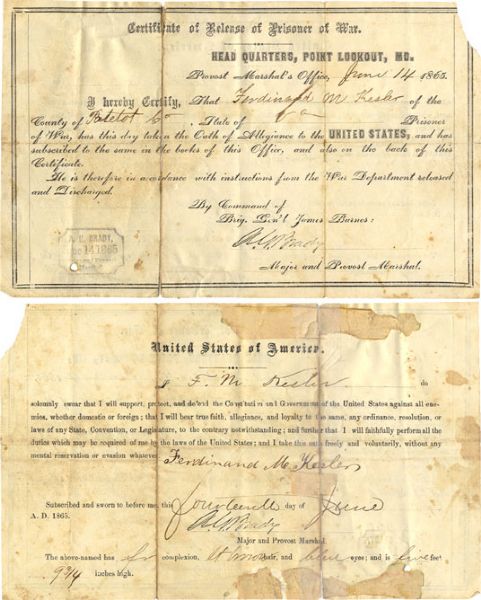 Certificate of Release of Prisoner of War.
HEAD QUARTERS, POINT LOOKOUT, MD.
Provost Marshal's Office, June 14 1865.
I hereby Certify, That Ferdinand M Kesler of the
County of Botetot Co State of Va Prisoner
of War, has this day taken the Oath of Allegiance to the UNITED STATES, and has
subscribed to the same in the books of this Office, and also on the back of this
Certificate.
He is therefore in accordance with instructions from the War Department released
and Discharged.
By Command of
Brig. Gen'l James Barnes:
A. G. Brady
Major and Provost Marshal.
A. G. BRADY,
14 1865
United States of America.
I F. M Kesler do
solemnly swear that I will support, protect, and defend the Constitution and Government of the United States against all ene-
mies, whether domestic or foreign; that I will bear true faith, allegiance, and loyalty to the same, any ordinance, resolution, or
laws of any State, Convention, or Legislature, to the contrary notwithstanding; and further that I will faithfully perform all the
duties which may be required of me by the laws of the United States; and I take this oath freely and voluntarily, without any
mental reservation or evasion whatever.
Ferdinand M Kesler
Subscribed and sworn to before me, this fourteenth day of June
A. D. 1865.
A. G. Brady
Major and Provost Marshal.
The above-named has fr complexion, hair, and blue eyes; and is five feet
9 3/4 inches high.